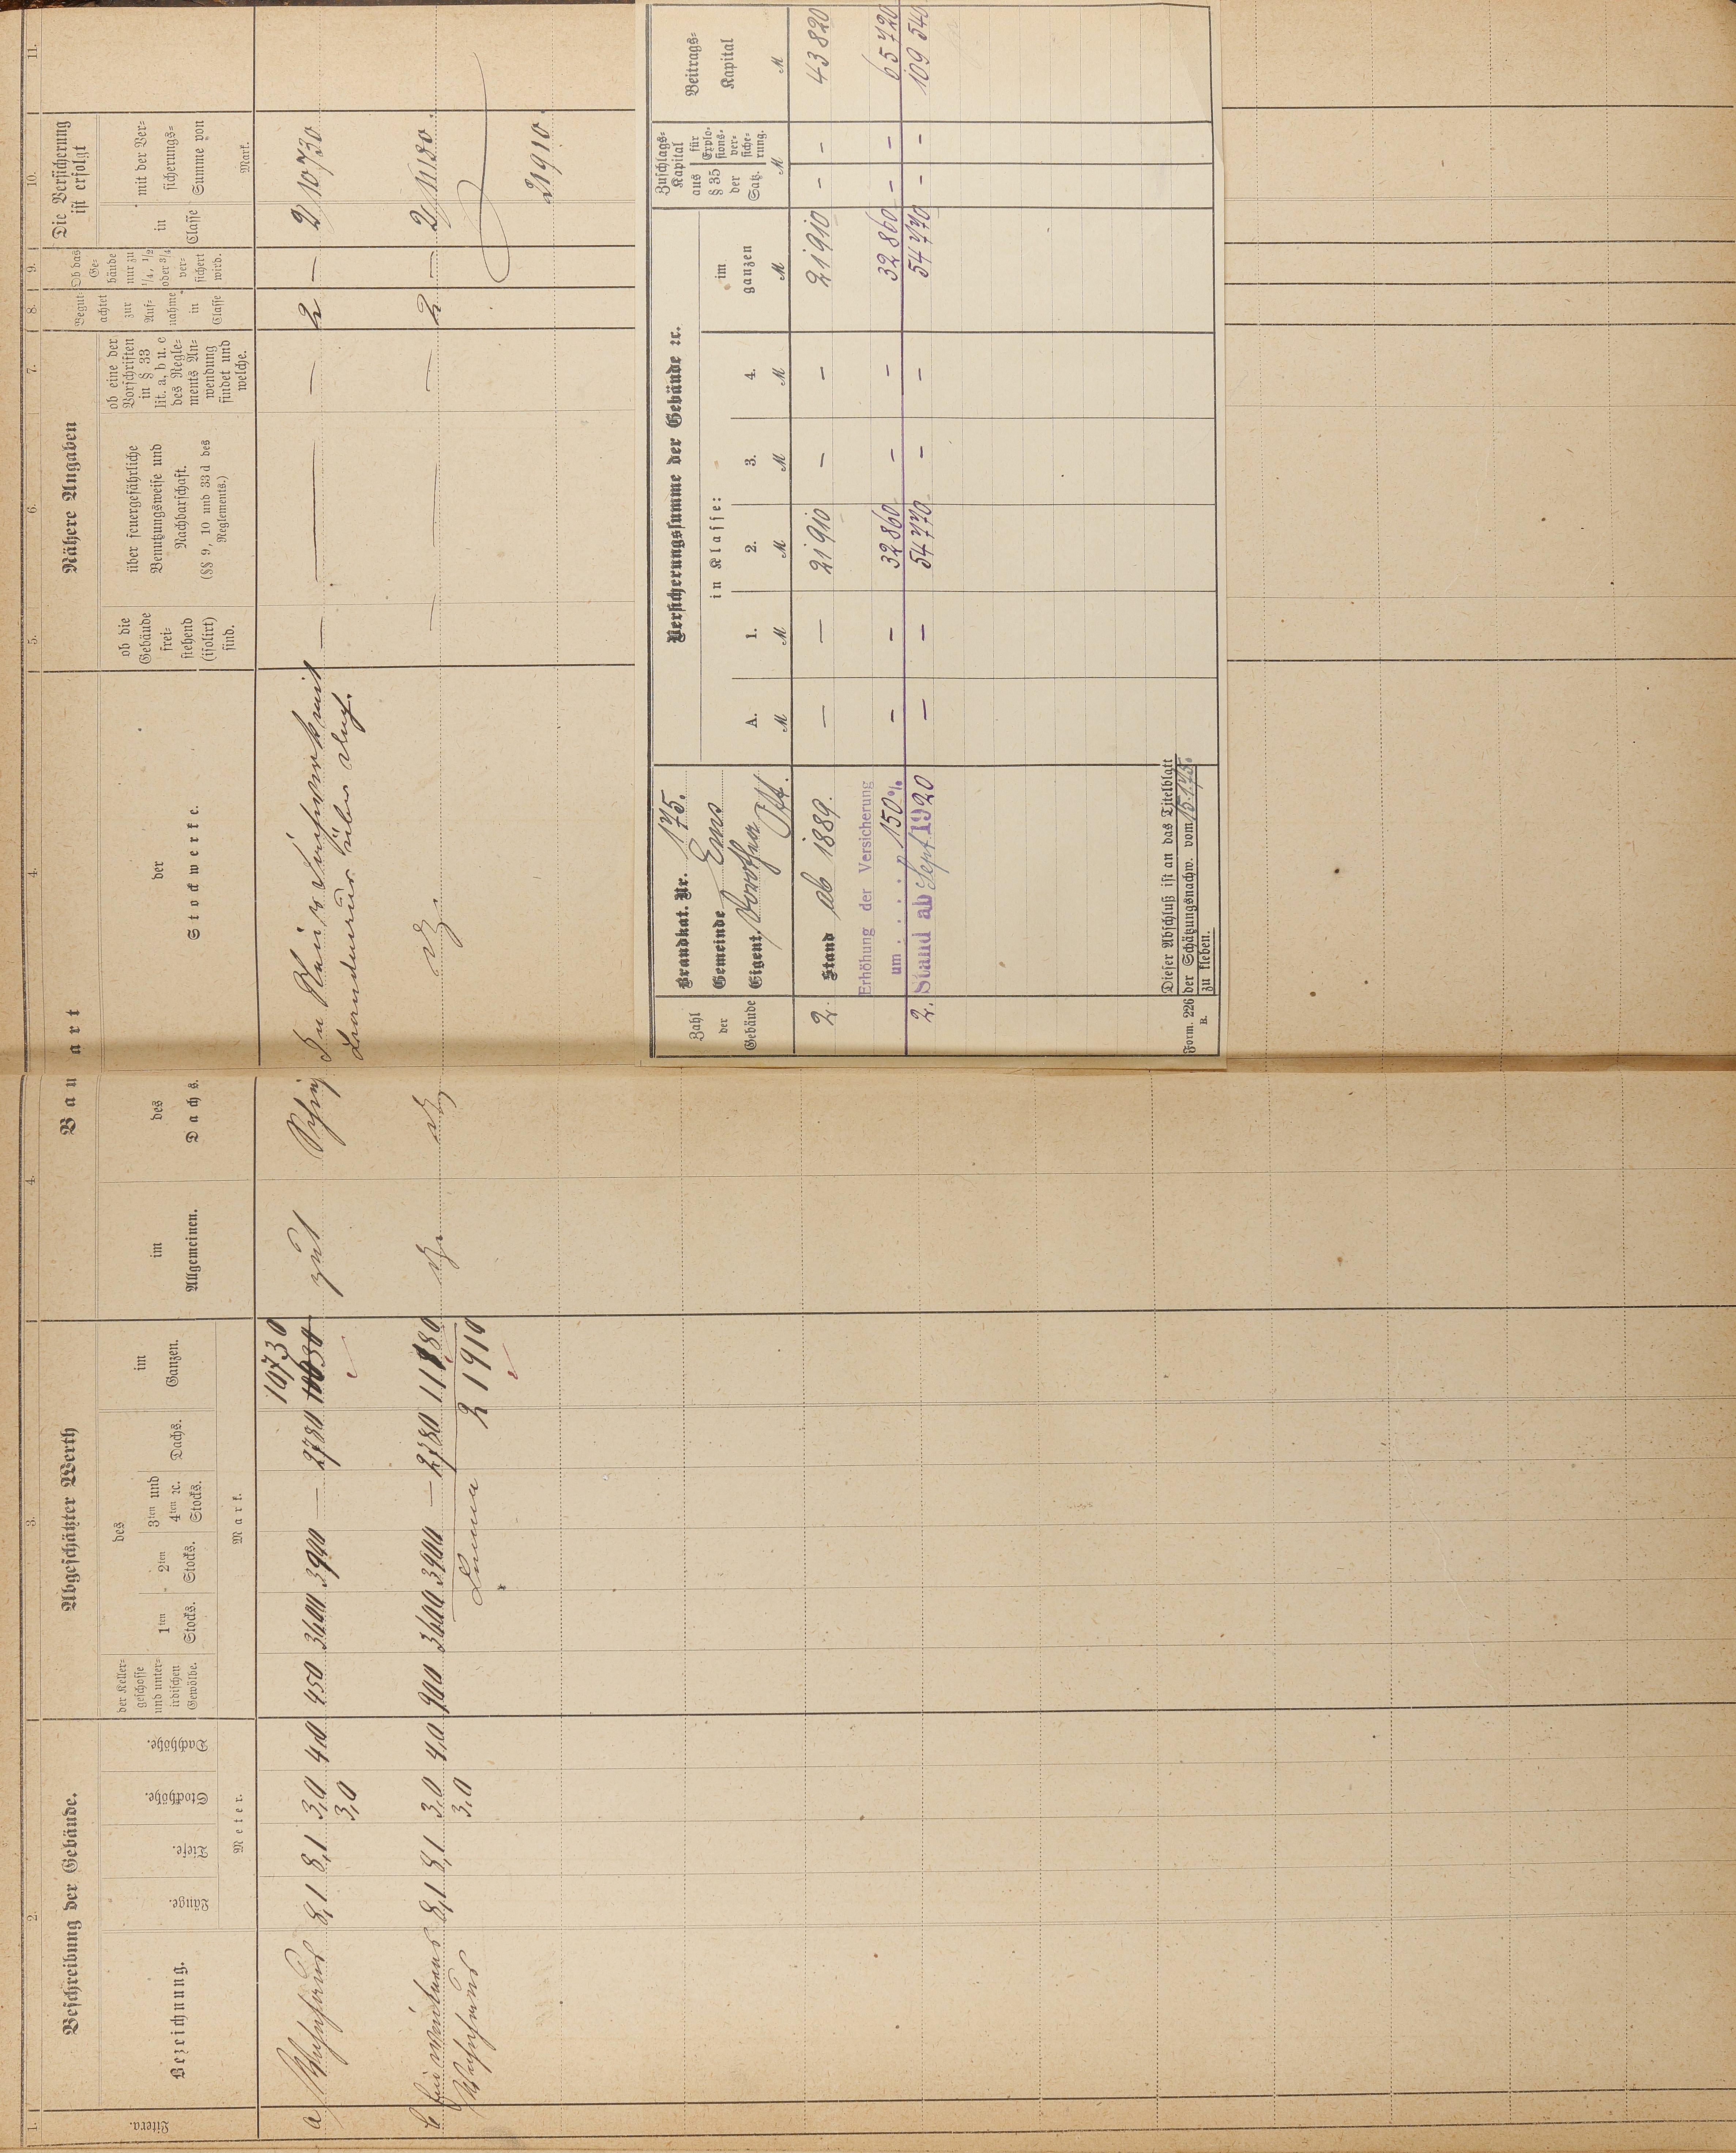 1.
2.
3.
4.
4.
5.
6.
7.
8.
9.
10.
11.
Litera.
Beschreibung der Gebäude.
Bezeichnung.
Länge.
Tiefe.
Stockhöhe.
Dachhöhe.
Meter.
Abgeschätzter Werth
des
der Keller-
geschosse
und unter-
irdischen
Gewölbe.
1ten
Stocks.
2ten
Stocks.
3ten und
4ten ꝛc.
Stocks.
Dachs.
im
Ganzen.
Mark.
Bauart
im
Allgemeinen.
des
Dachs.
der
Stockwerke.
Nähere Angaben
ob die
Gebäude
frei-
stehend
(isolirt)
sind.
über feuergefährliche
Benutzungsweise und
Nachbarschaft.
(§§ 9, 10 und 33d des
Reglements.)
ob eine der
Vorschriften
in § 33
lit. a, b u. c
des Regle-
ments An-
wendung
findet und
welche.
Begut-
achtet
zur
Auf-
nahme
in
Classe
Ob das
Ge-
bäude
nur zu
1/4, 1/2
oder 3/4
ver-
sichert
wird.
Die Versicherung
ist erfolgt
in
Classe
mit der Ver-
sicherungs-
Summe von
Mark.
10730
a Wohnhaus 8,1 8,1 3,0 4,0 450 3600 3900 — 2780 gut — — — 2 — 2 10730
3,0
b Ein weiteres 8,1 8,1 3,0 4,0 900 3600 3900 — 2780 11180 — — — 2 — 2 11180.
Wohnhaus 3,0 Summa 21910
21910.
Zahl
der
Gebäude
Brandkat. Nr. 175.
Gemeinde Ems
Eigent. Dorothea Ott.
Versicherungssumme der Gebäude ꝛc.
in Klasse:
A.
M
1.
M
2.
M
3.
M
4.
M
im
ganzen
M
Zuschlags-
Kapital
aus
§ 35
der
Satz.
für
Explo-
sions-
ver-
siche-
rung.
M
Beitrags-
Kapital
M
2. Stand ab 1889. — — 21910 — — 21910 — — 43820
Erhöhung der Versicherung
um . . . . 150% — — 32860 — — 32860 — — 65720
2. Stand ab Sept 1920 — — 54770 — — 54770 — — 109540
Form. 226
B.
Dieser Abschluß ist an das Titelblatt
der Schätzungsnachw. vom
zu kleben.